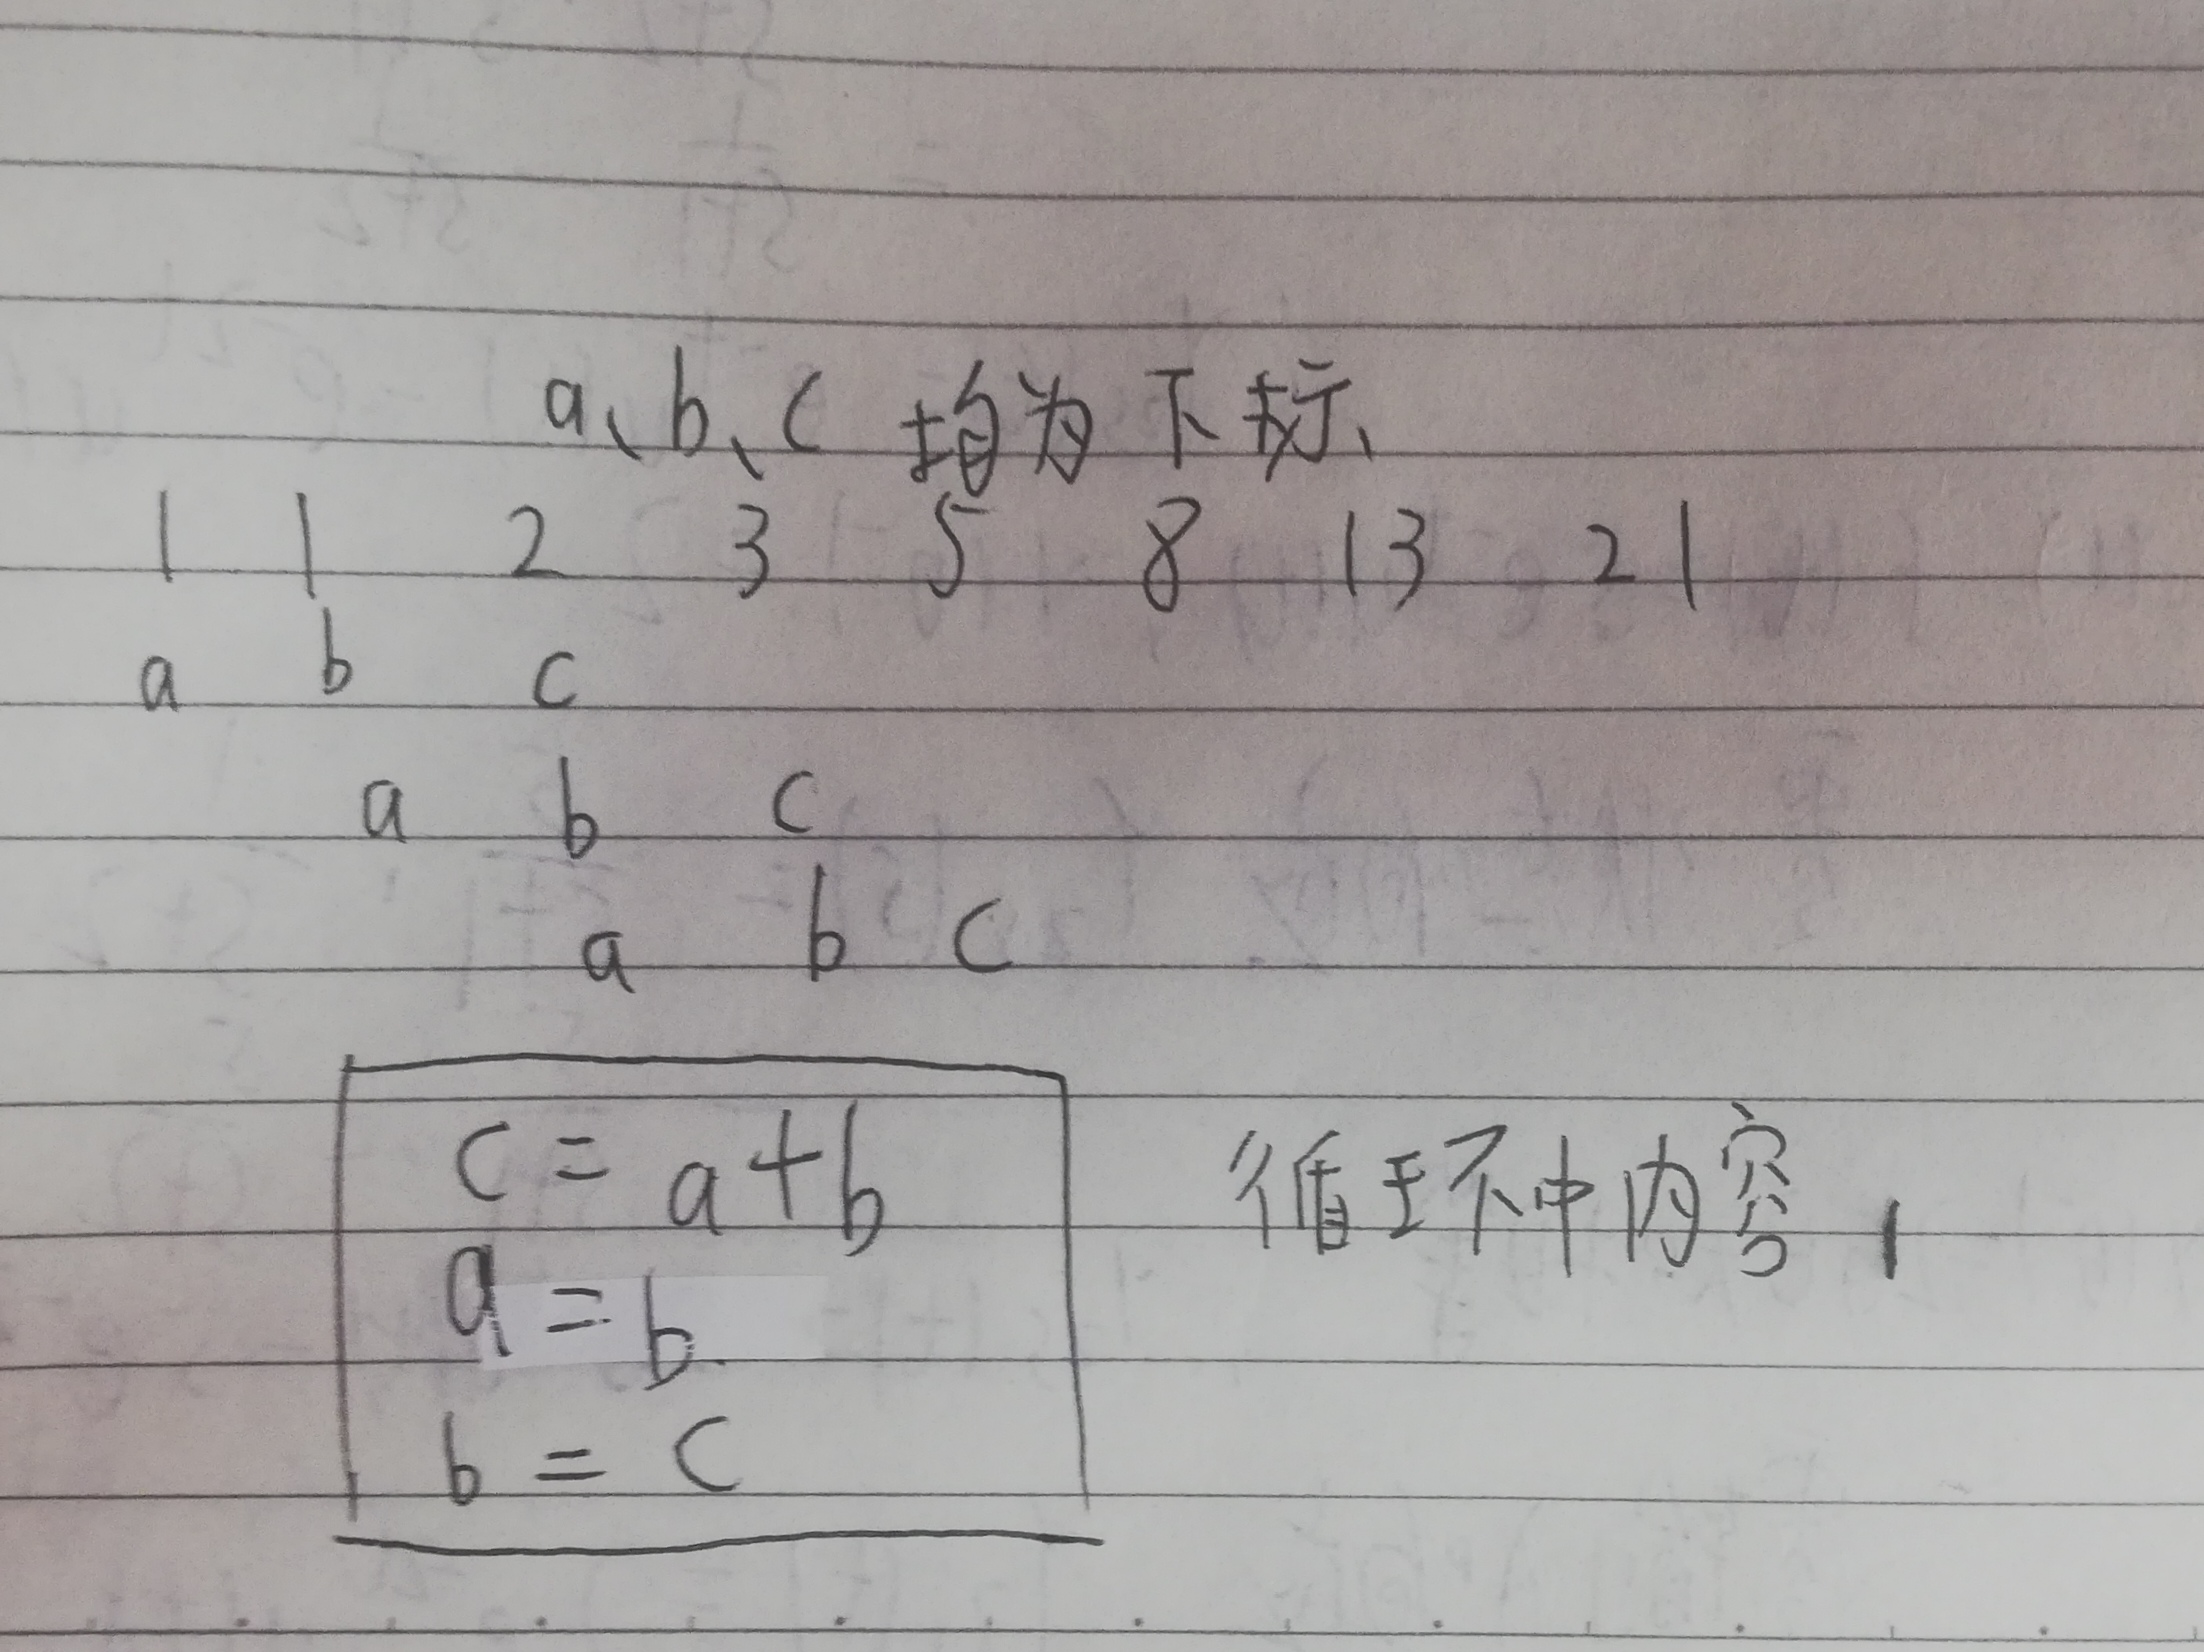 a、b、c 均为下标、
1 1 2 3 5 8 13 21
a b c
a b c
a b c
c = a+b
循环中内容,
a = b
b = c